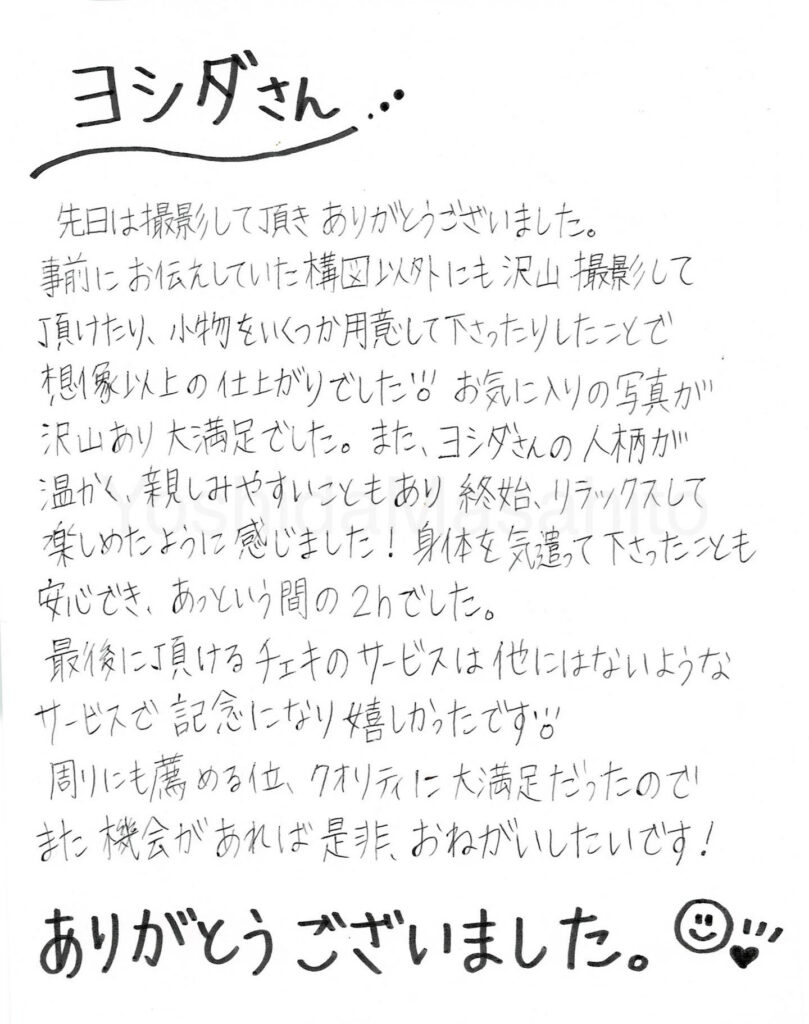 ヨシダさん...
先日は撮影して頂きありがとうございました。
事前にお伝えしていた構図以外にも沢山撮影して
頂けたり、小物をいくつか用意して下さったりしたことで
想像以上の仕上がりでした お気に入りの写真が
沢山あり大満足でした。また、ヨシダさんの人柄が
温かく、親しみやすいこともあり終始、リラックスして
楽しめたように感じました！身体を気遣って下さったことも
安心でき、あっという間の2hでした。
最後に頂けるチェキのサービスは他にはないような
サービスで記念になり嬉しかったです
周りにも薦める位、クオリティに大満足だったので
また機会があれば是非、おねがいしたいです！
ありがとうございました。
YoshidaMasahito